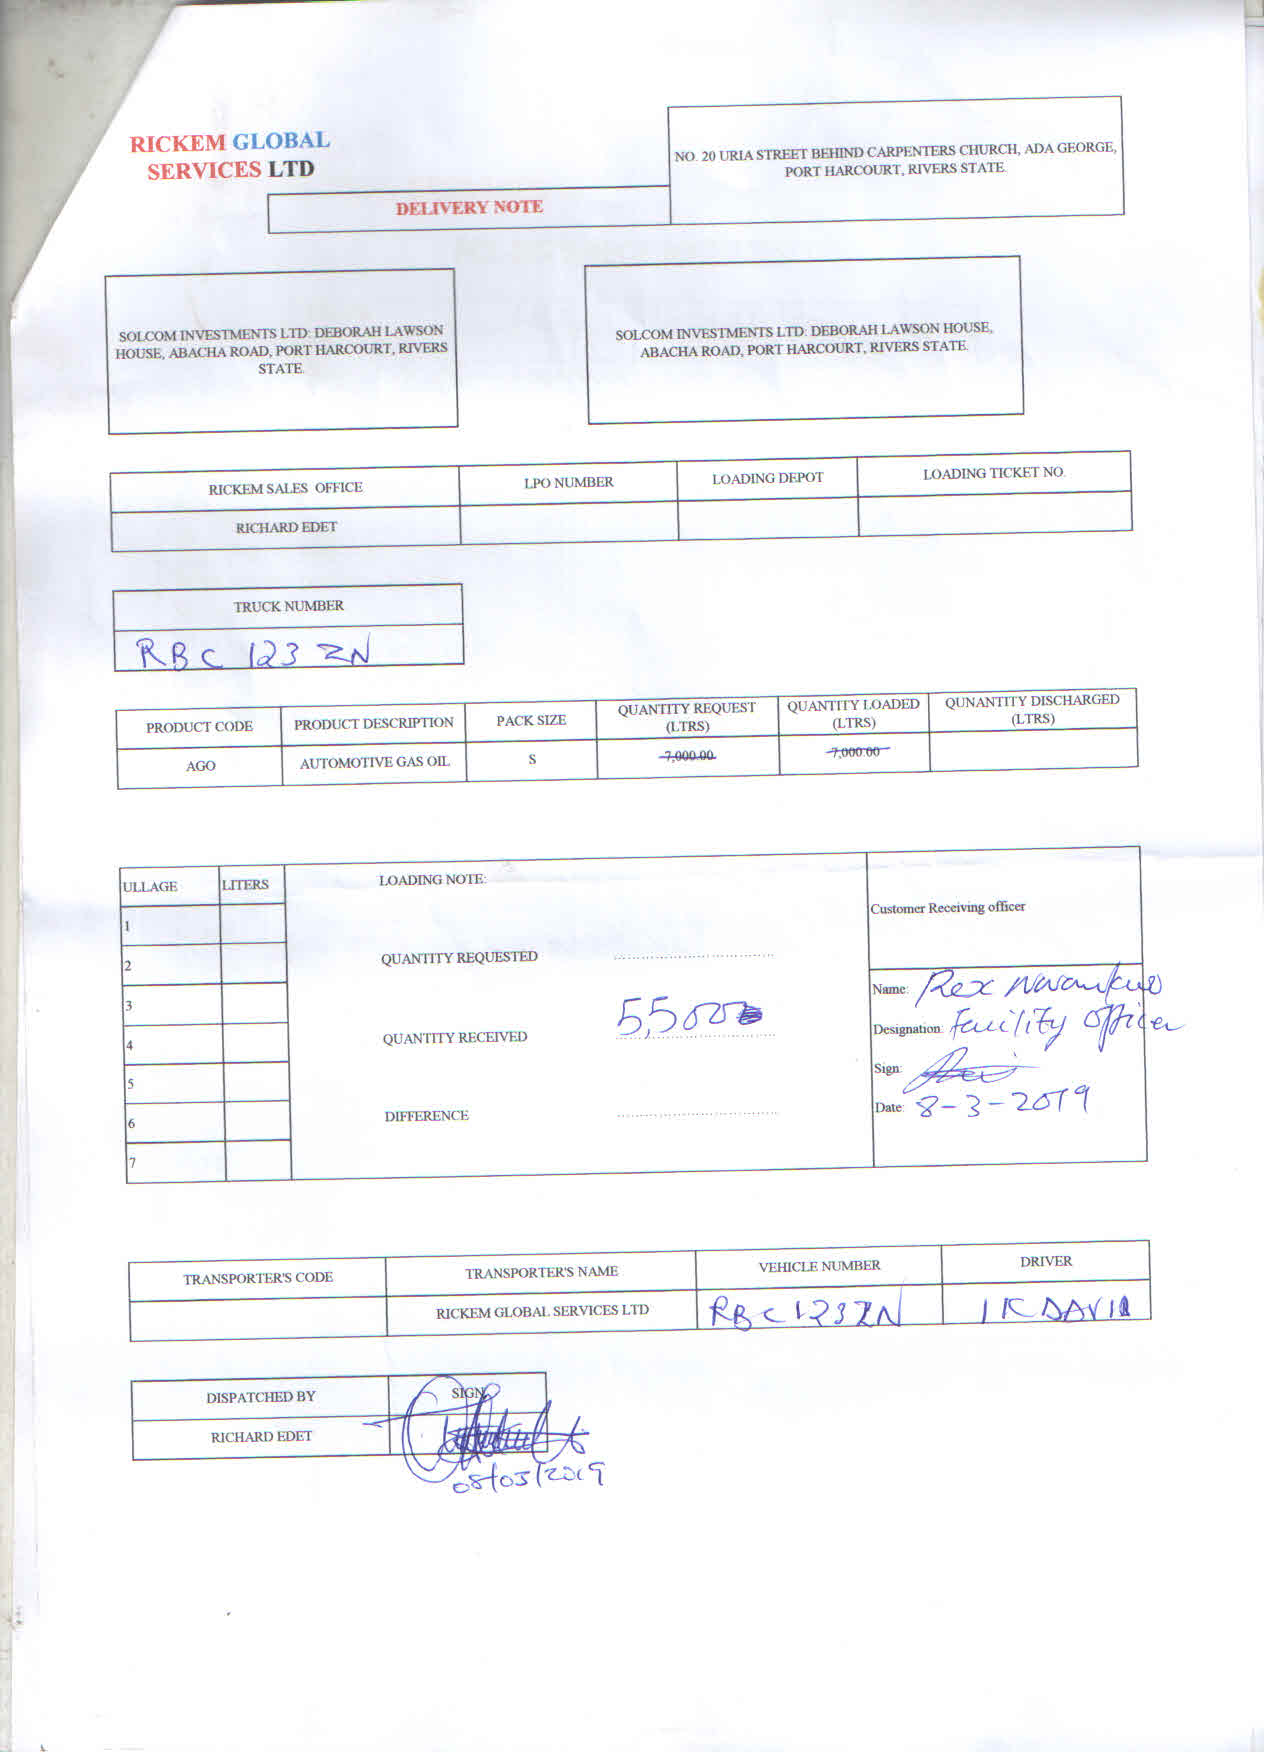 RICKEM GLOBAL
SERVICES LTD
NO. 20 URIA STREET BEHIND CARPENTERS CHURCH, ADA GEORGE,
PORT HARCOURT, RIVERS STATE.
DELIVERY NOTE
SOLCOM INVESTMENTS LTD: DEBORAH LAWSON
HOUSE, ABACHA ROAD, PORT HARCOURT, RIVERS
STATE.
SOLCOM INVESTMENTS LTD: DEBORAH LAWSON HOUSE,
ABACHA ROAD, PORT HARCOURT, RIVERS STATE.
RICKEM SALES OFFICE LPO NUMBER LOADING DEPOT LOADING TICKET NO.
RICHARD EDET
TRUCK NUMBER
RBC 123 ZN
PRODUCT CODE PRODUCT DESCRIPTION PACK SIZE QUANTITY REQUEST (LTRS) QUANTITY LOADED (LTRS) QUNANTITY DISCHARGED (LTRS)
AGO AUTOMOTIVE GAS OIL S 7,000.00 7,000.00
ULLAGE LITERS LOADING NOTE:
Customer Receiving officer
1
2 QUANTITY REQUESTED
Name: Rex
3
QUANTITY RECEIVED
Designation: Facility Officer
4
Sign:
5
DIFFERENCE
Date: 8-3-2019
6
7
TRANSPORTER'S CODE TRANSPORTER'S NAME VEHICLE NUMBER DRIVER
RICKEM GLOBAL SERVICES LTD RBC 123ZN IK DAVID
DISPATCHED BY SIGN
RICHARD EDET
08/03/2019